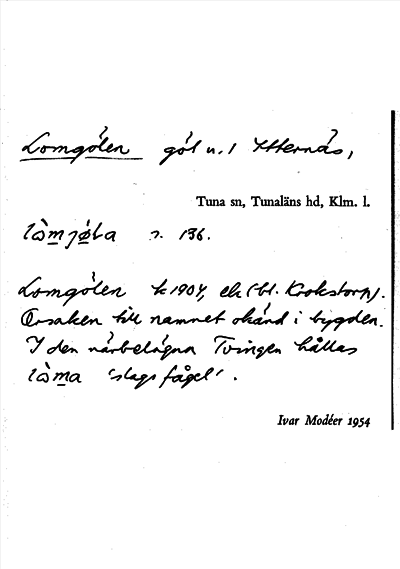 Lomgölen göl u. l Ytternäs,
Tuna sn, Tunaläns hd, Klm. l.
lòmjø̀la s. 136.
Lomgölen k 1904, ek (bl. Krokstorp).
Orsaken till namnet okänd i bygden.
I den närbelägna Tvingen hållas
lòma 'slags fågel'.
Ivar Modéer 1954